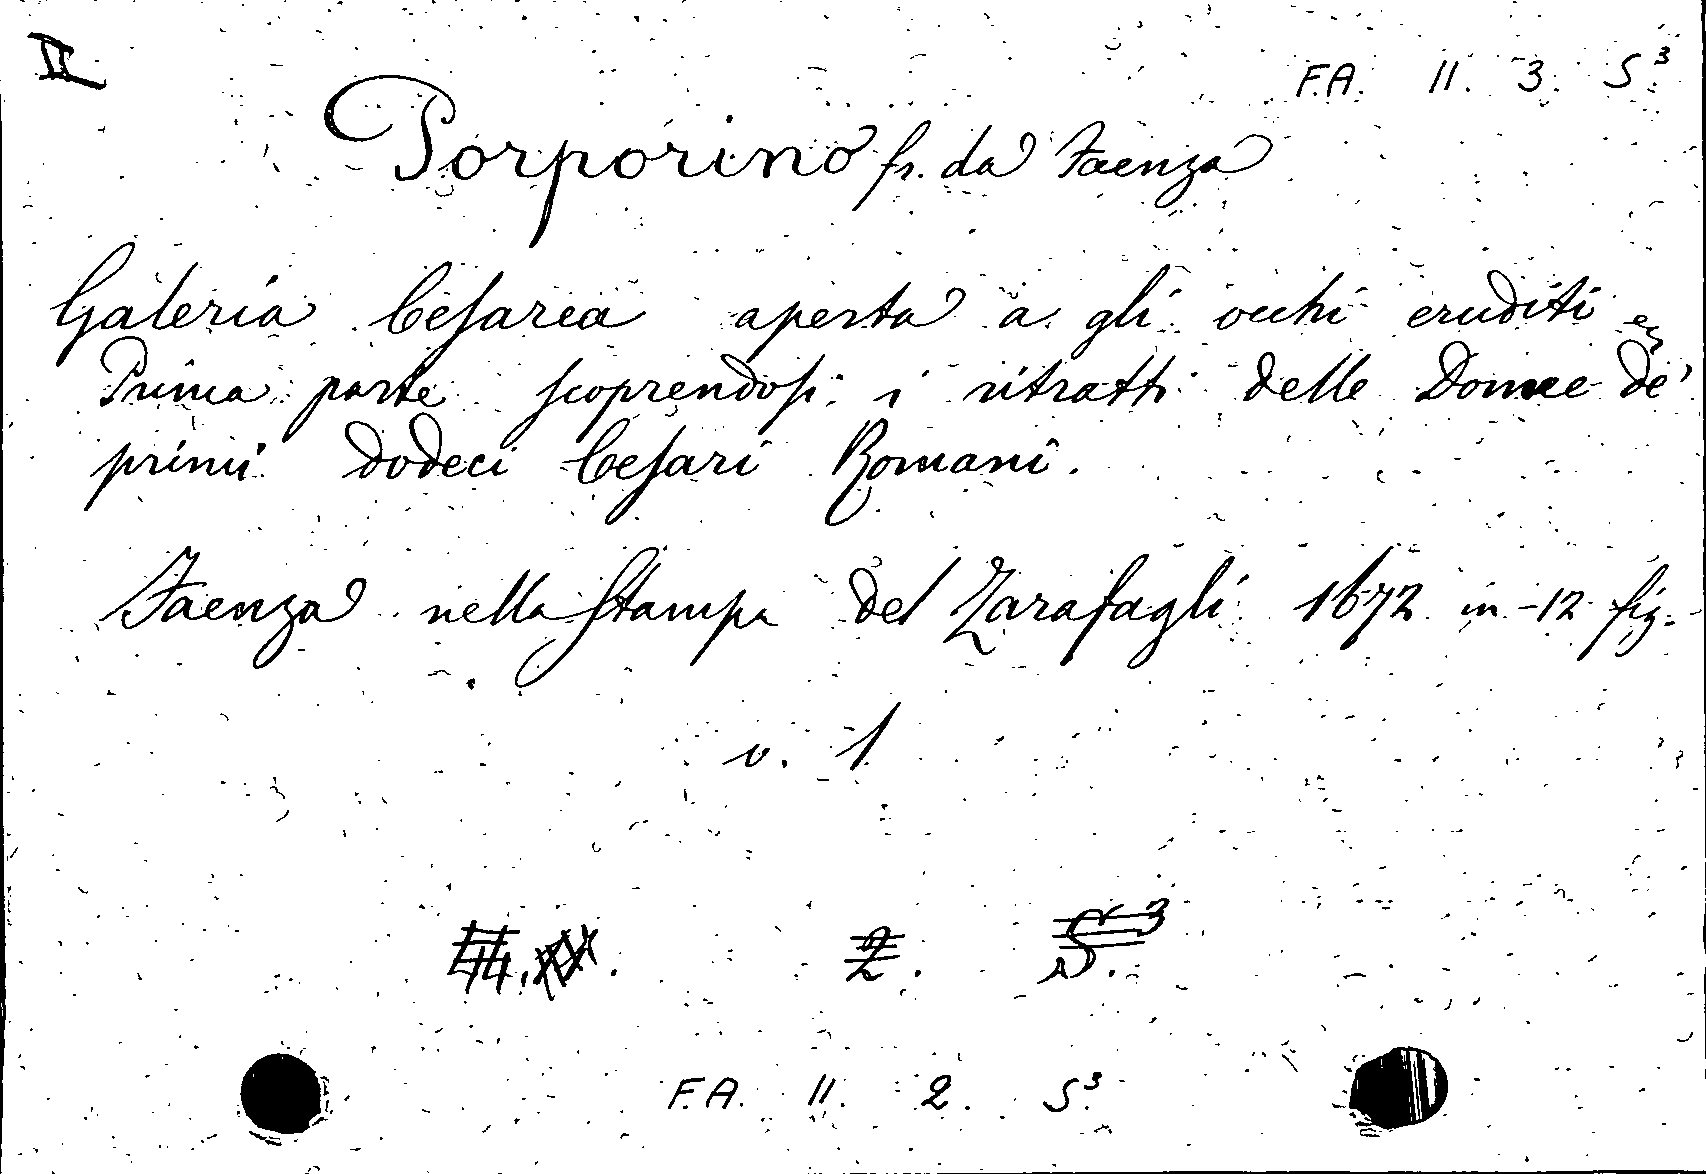 II
F.A. 11. 3. S.³
Porporino fr. da Faenza
Galeria Cesarea aperta a gli occhi eruditi
Prima parte scoprendosi i ritratti delle Donne de'
primi dodeci Cesari Romani.
Faenza nella Stampa del Zarafagli 1672 in-12 fig.
v. 1
2. S.³
F.A. 11. 2. S.³